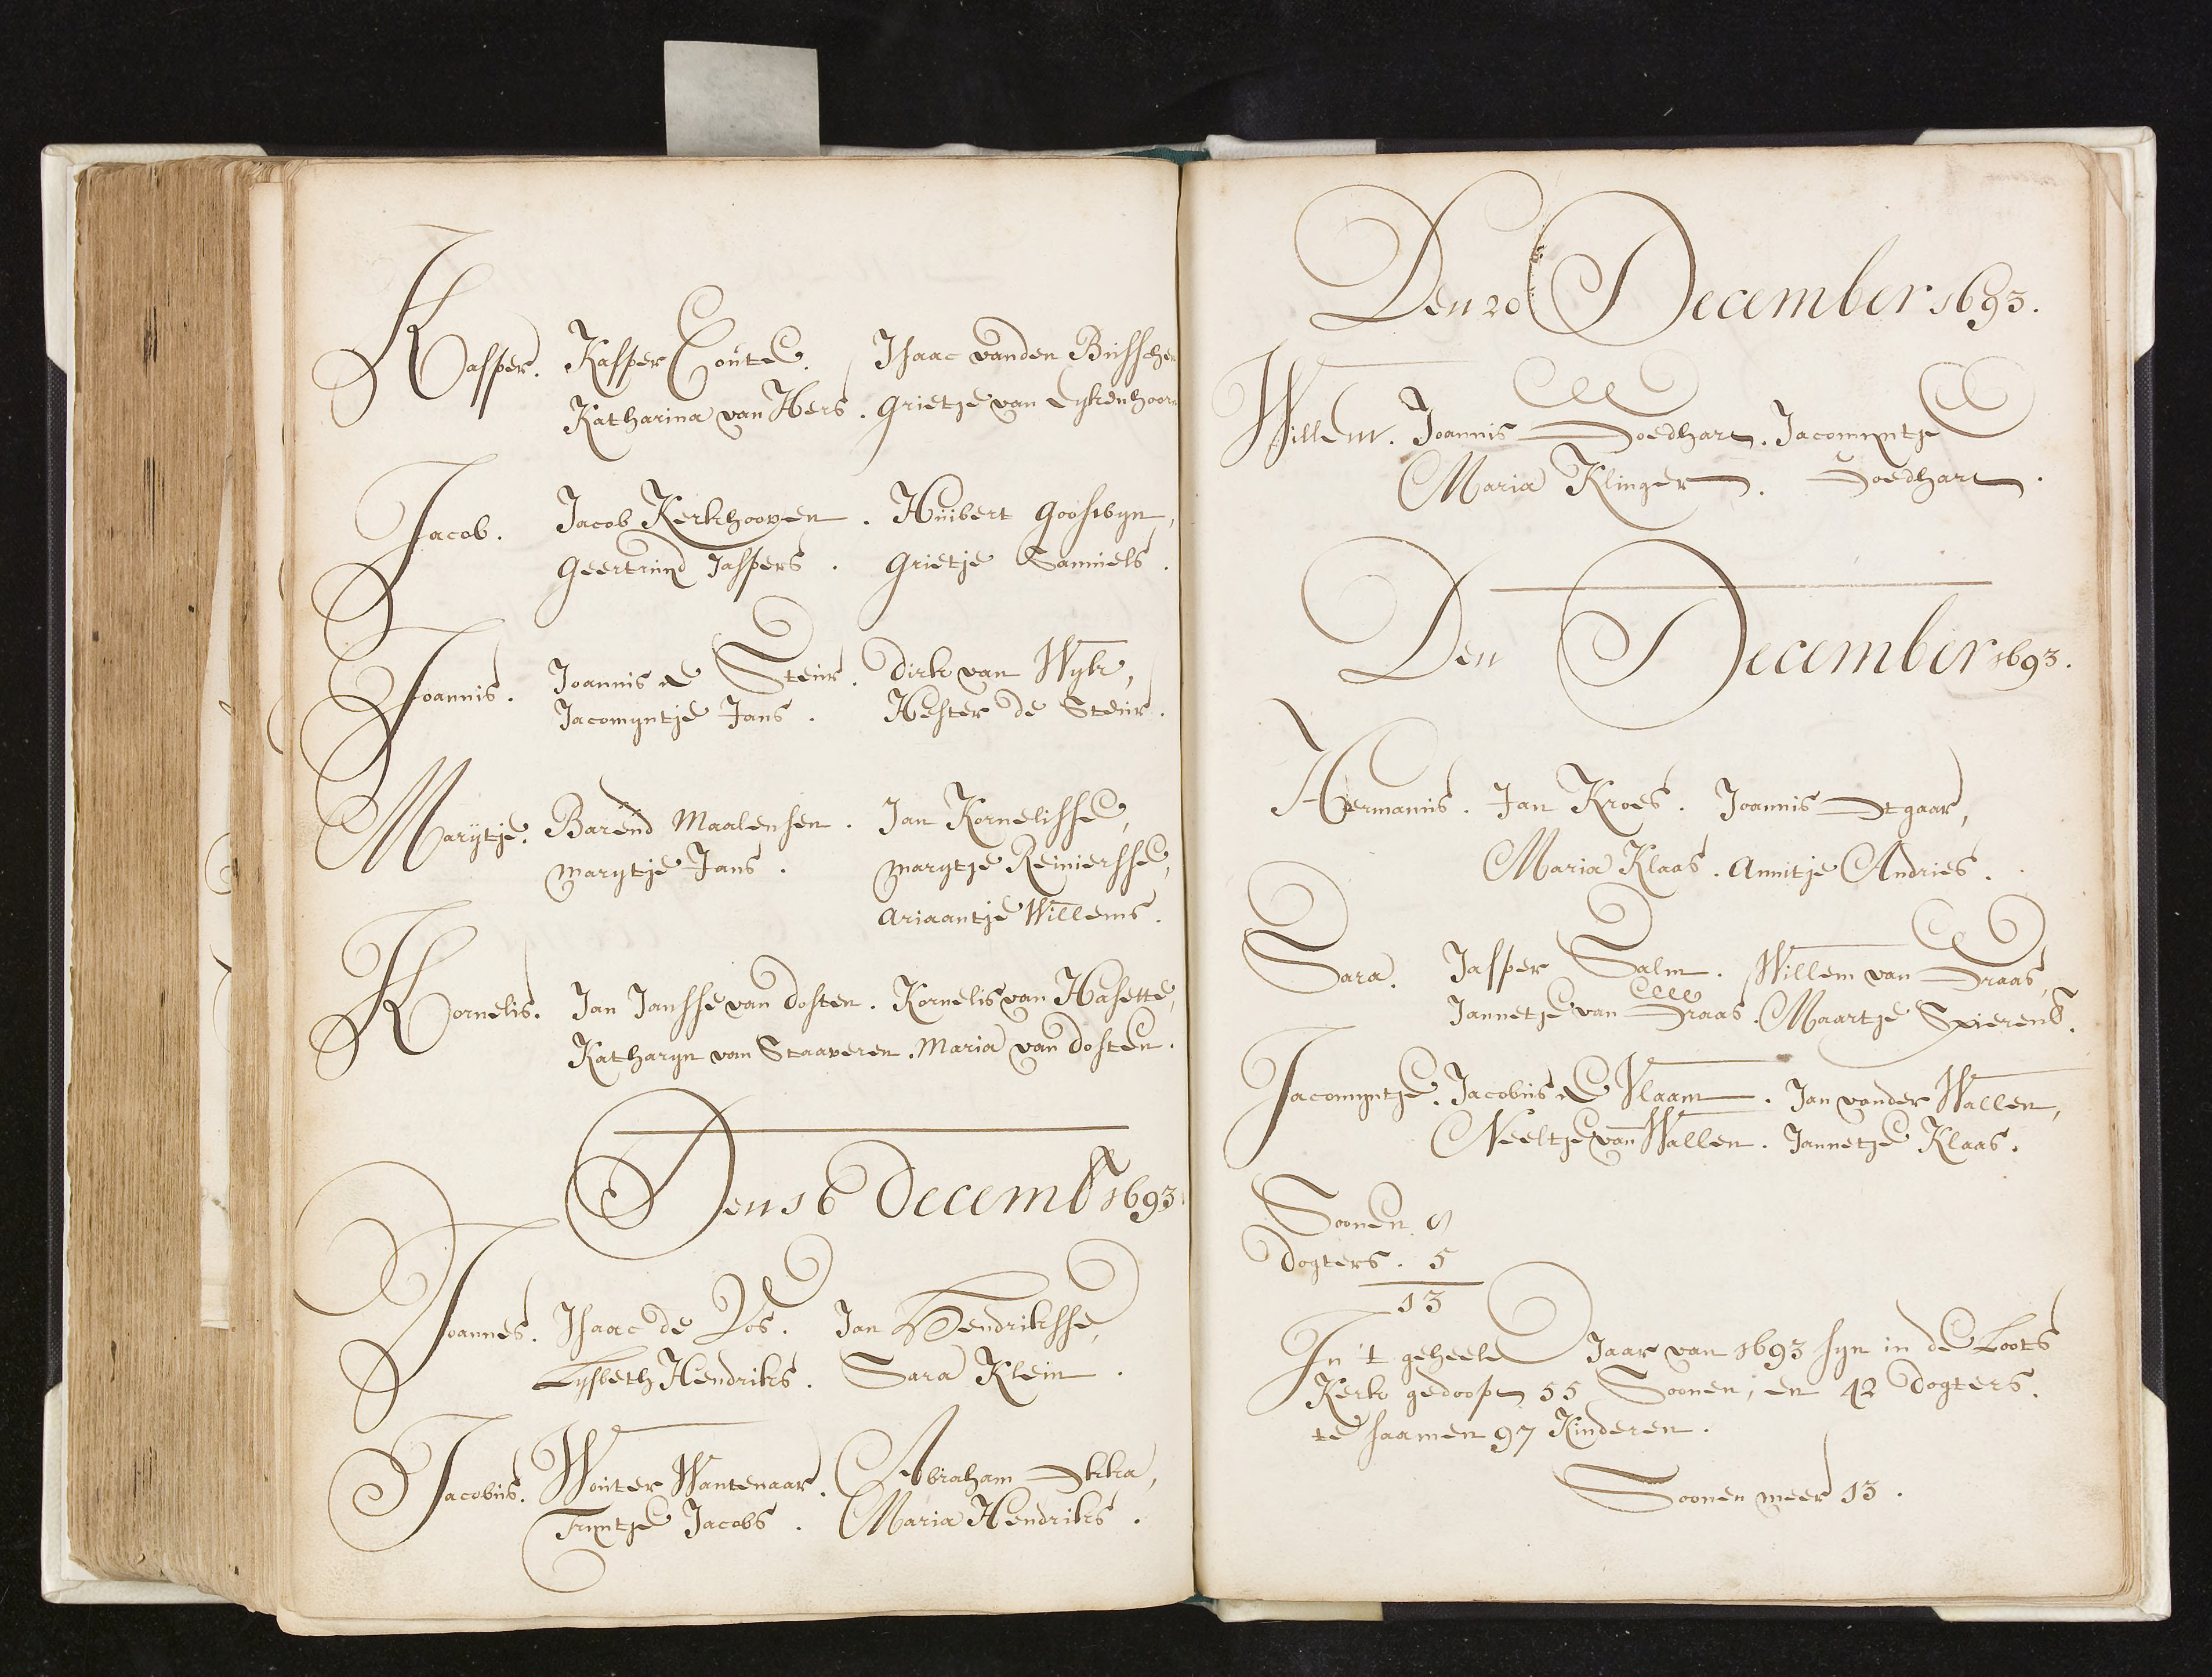 Kasper. Kasper Coute. Isaac vanden Bussche
Katharina van Hers. Grietje van Eykenhoorn
Jacob. Jacob Kerkhooven. Huibert Gooswyn,
Geertruid Jaspers. Grietje Samuels.
Joannis. Joannis de Steur. Dirk van Wyk,
Jacomyntje Jans. Hester de Steur.
Marytje. Barend Maalensen. Jan Kornelisse,
Marytje Jans. Marytje Reinierse,
Ariaantje Willems.
Kornelis. Jan Jansse van Dosten. Kornelis van Hasette,
Katharyn van Staaveren. Maria van Dosten.
Den 16 Decemb 1693
Joannes. Isaac de Vos. Jan Hendriksse,
Lysbeth Hendriks. Sara Klein.
Jacobus. Wouter Wantenaar. Abraham
Tryntje Jacobs. Maria Hendriks.
Den 20 December 1693.
Willem. Joannis Goedhart. Jacomyntje
Maria Klinger. Goedhart.
Den December 1693.
Hermanis. Jan Kroes. Joannis
Maria Klaas. Annitje Andries.
Sara. Jasper Salm. Willem van Graas,
Jannetje van Graas. Maartje Spierens.
Jacomyntje. Jacobus de Vlaam. Jan vander Wallen,
Neeltje van Wallen. Jannetje Klaas.
Soonen 8
Dogters. 5
13
In 't geheele Jaar van 1693 syn in de Loots
Kerk gedoopt 55 Soonen; en 42 Dogters.
te saamen 97 Kinderen.
Soonen meer 13.